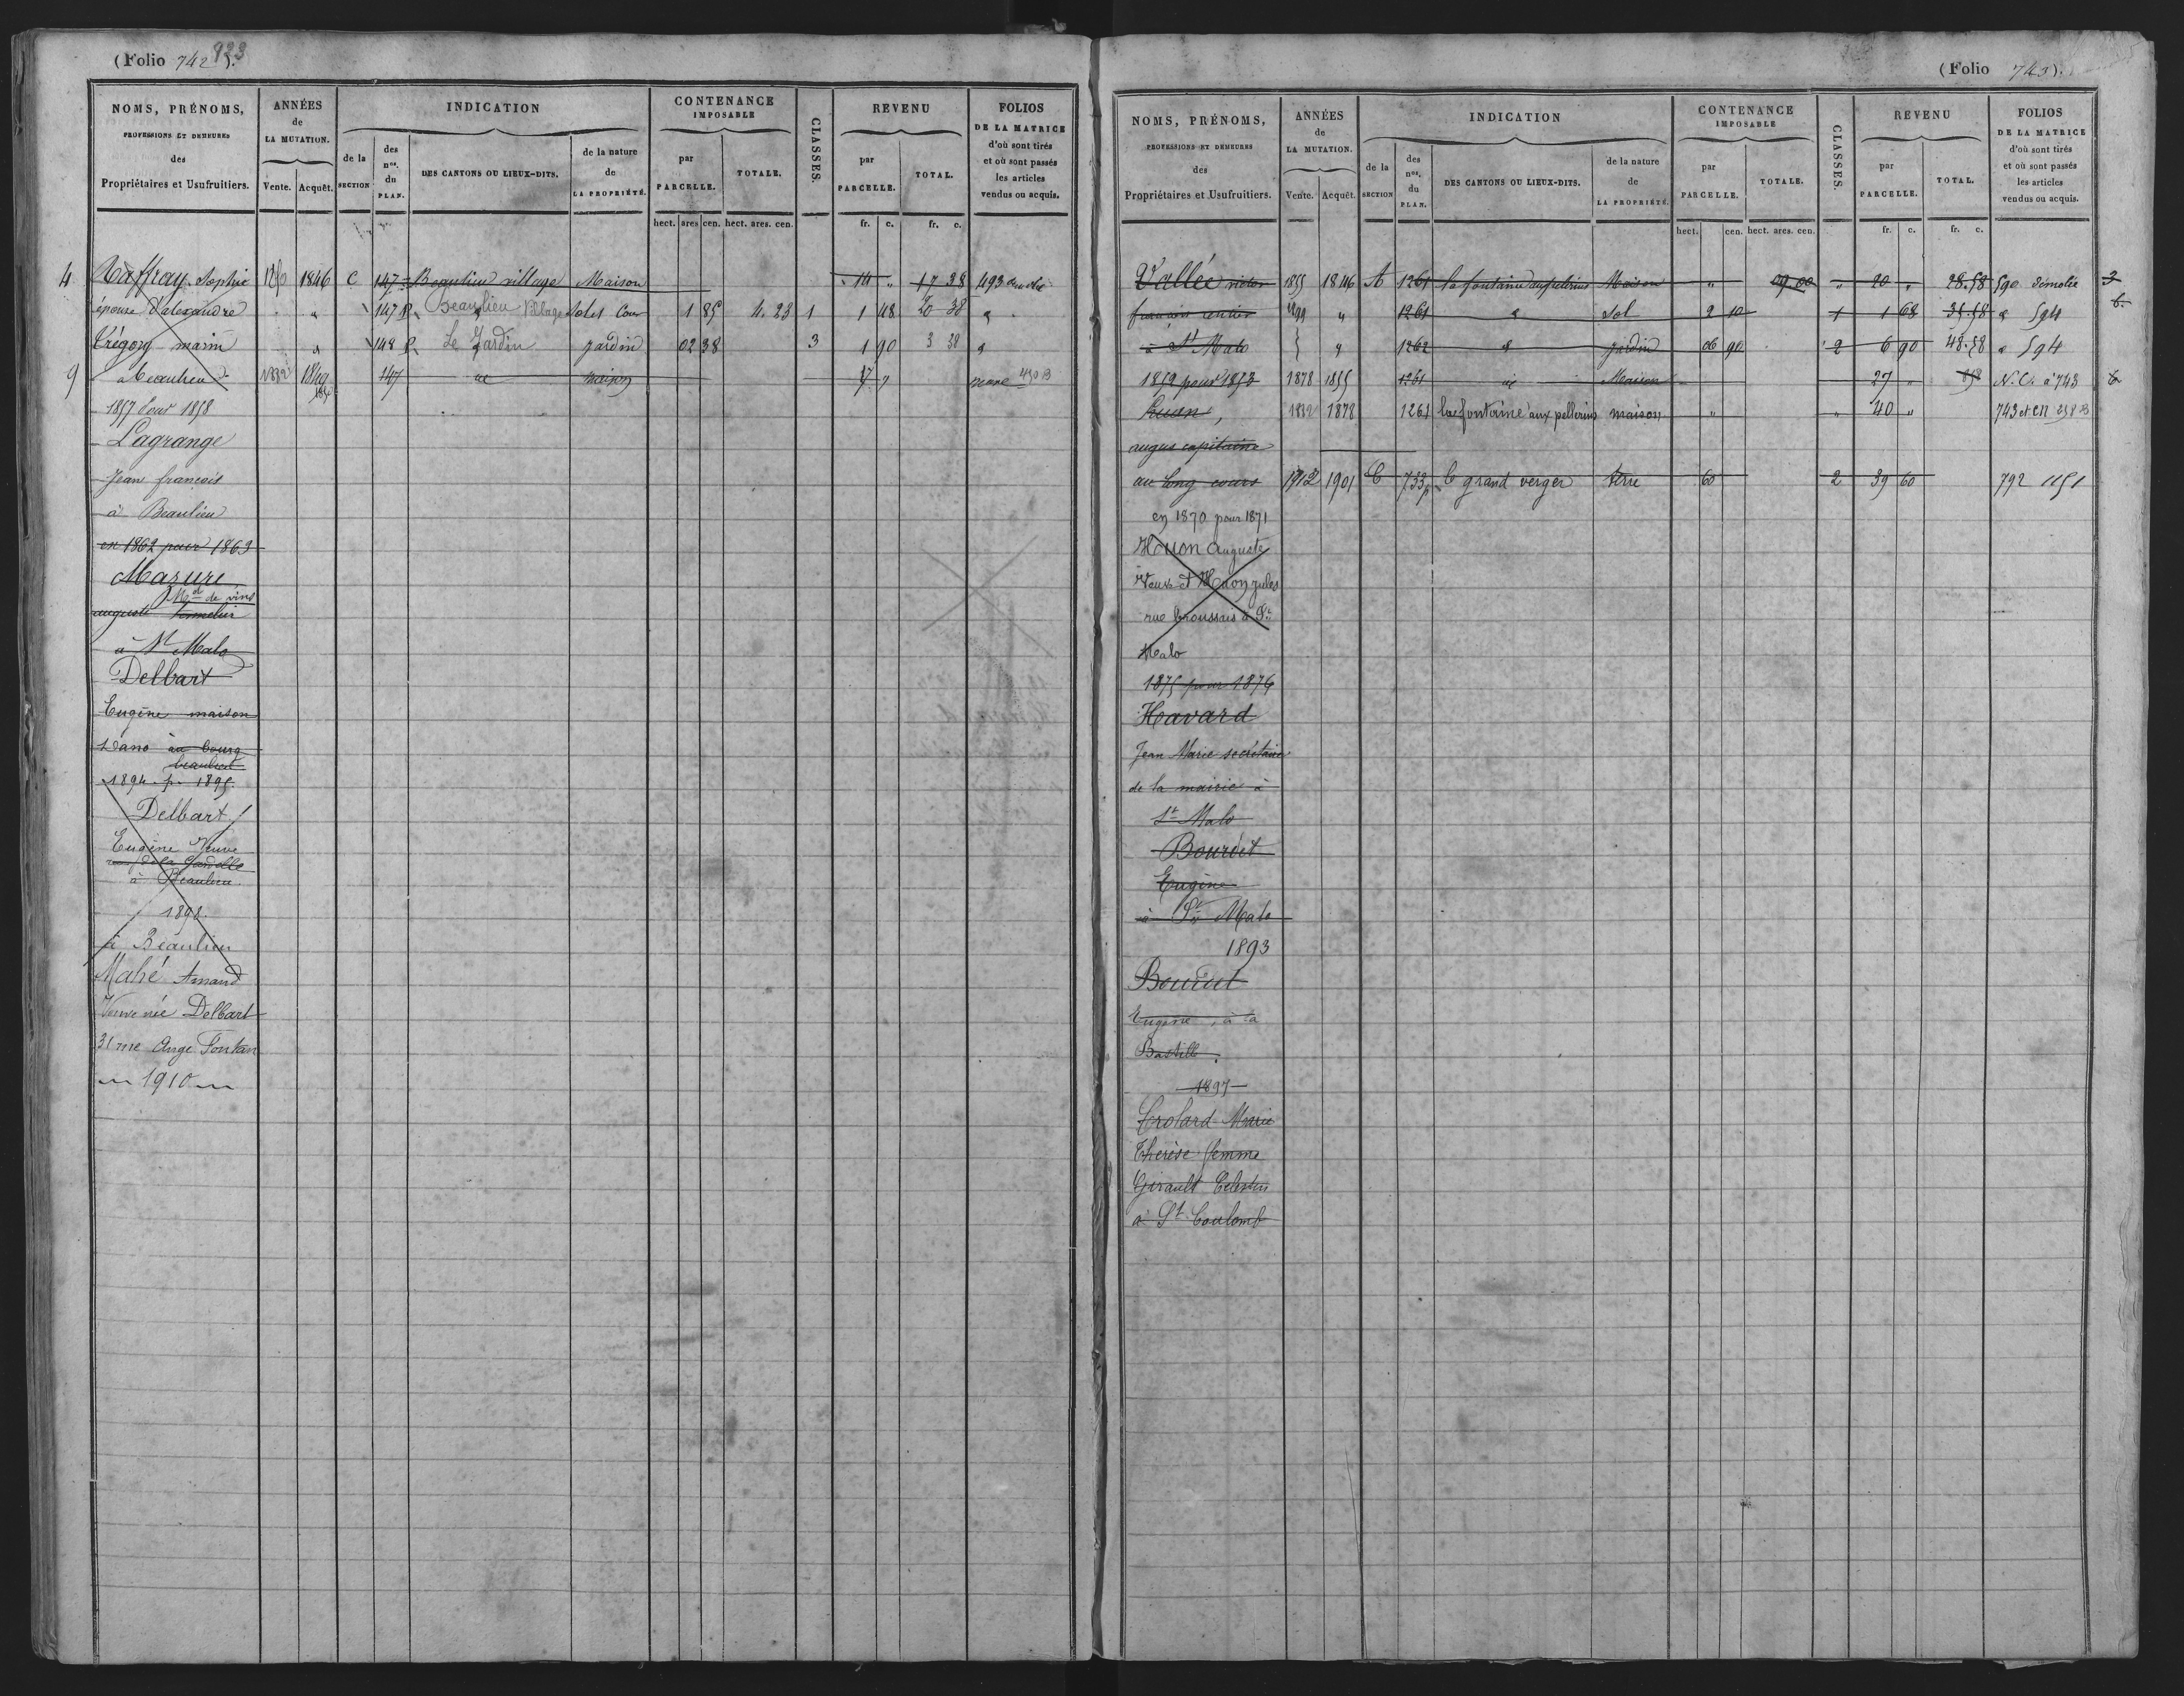 (Folio 742).
923
NOMS, PRÉNOMS,
PROFESSIONS ET DEMEURES
des
Propriétaires et Usufruitiers.
ANNÉES
de
LA MUTATION.
Vente. Acquêt.
INDICATION
de la
SECTION
des
nos.
du
PLAN.
DES CANTONS OU LIEUX-DITS.
de la nature
de
LA PROPRIÉTÉ.
CONTENANCE
IMPOSABLE
par
PARCELLE.
TOTALE.
CLASSES.
REVENU
par
PARCELLE.
TOTAL.
FOLIOS
DE LA MATRICE
d'où sont tirés
et où sont passés
les articles
vendus ou acquis.
hect. ares cen. hect. ares. cen. fr. c. fr. c.
4 Raffray Sophie 1846 C 147 Beaulieu village Maison 14 " 17 38 493
épouse d'alexandre " 147 P Beaulieu Village Sol et Cour 1 85 4. 23 1 1 48 20 38 "
Trégory marin " 148 P. Le Jardin jardin 02 38 3 1 90 3 38 "
9 à Beaulieu 1882 1849 147 id maison 17 "
1857 pour 1858
Lagrange
Jean françois
à Beaulieu
en 1862 pour 1863
Mazure
Md de vins
auguste tonnelier
à St Malo
Delbart
Eugène maison
Dano au bourg
beaulieu
1894 p. 1895.
Delbart
Eugène Veuve
rue de la Gardelle
à Beaulieu
1898.
à Beaulieu
Mahé Amand
Veuve née Delbart
31 rue Ange Fontan
1910
(Folio 743).
NOMS, PRÉNOMS,
PROFESSIONS ET DEMEURES
des
Propriétaires et Usufruitiers.
ANNÉES
de
LA MUTATION.
Vente. Acquêt.
INDICATION
de la
SECTION
des
nos.
du
PLAN.
DES CANTONS OU LIEUX-DITS.
de la nature
de
LA PROPRIÉTÉ.
CONTENANCE
IMPOSABLE
par
PARCELLE.
TOTALE.
CLASSES.
REVENU
par
PARCELLE.
TOTAL.
FOLIOS
DE LA MATRICE
d'où sont tirés
et où sont passés
les articles
vendus ou acquis.
hect. cen. hect. ares. cen. fr. c. fr. c.
Vallée victor 1855 1846 A 1261 la fontaine aux pélerins Maison " 09 00 " 20 " 28.58 590 démolie 3
françois rentier " 1261 " Sol 2 10 1 1 68 35.58 " 594 6
à St Malo " 1262 " jardin 06 90 2 6 90 48.58 " 594
1852 pour 1853 1878 1855 1261 id Maison 27 " N.C. à 743 6
Huon, 1882 1878 1261 la fontaine aux pellerins maison " " 40 " 743 et en 258 B
augus capitaine
au long cours 1912 1901 C 733p le grand verger terre 60 2 39 60 792 1151
en 1870 pour 1871
Huon Auguste
Veuve et Huon jules
rue Broussais à St
Malo
1875 pour 1876
Havard
Jean Marie secrétaire
de la mairie à
St Malo
Bourdet
Eugène
à St Malo
1893
Bourdet
Eugène, à la
Bastille.
1897
Crolard Marie
Thérèse femme
Girault Celestin
à St Coulomb